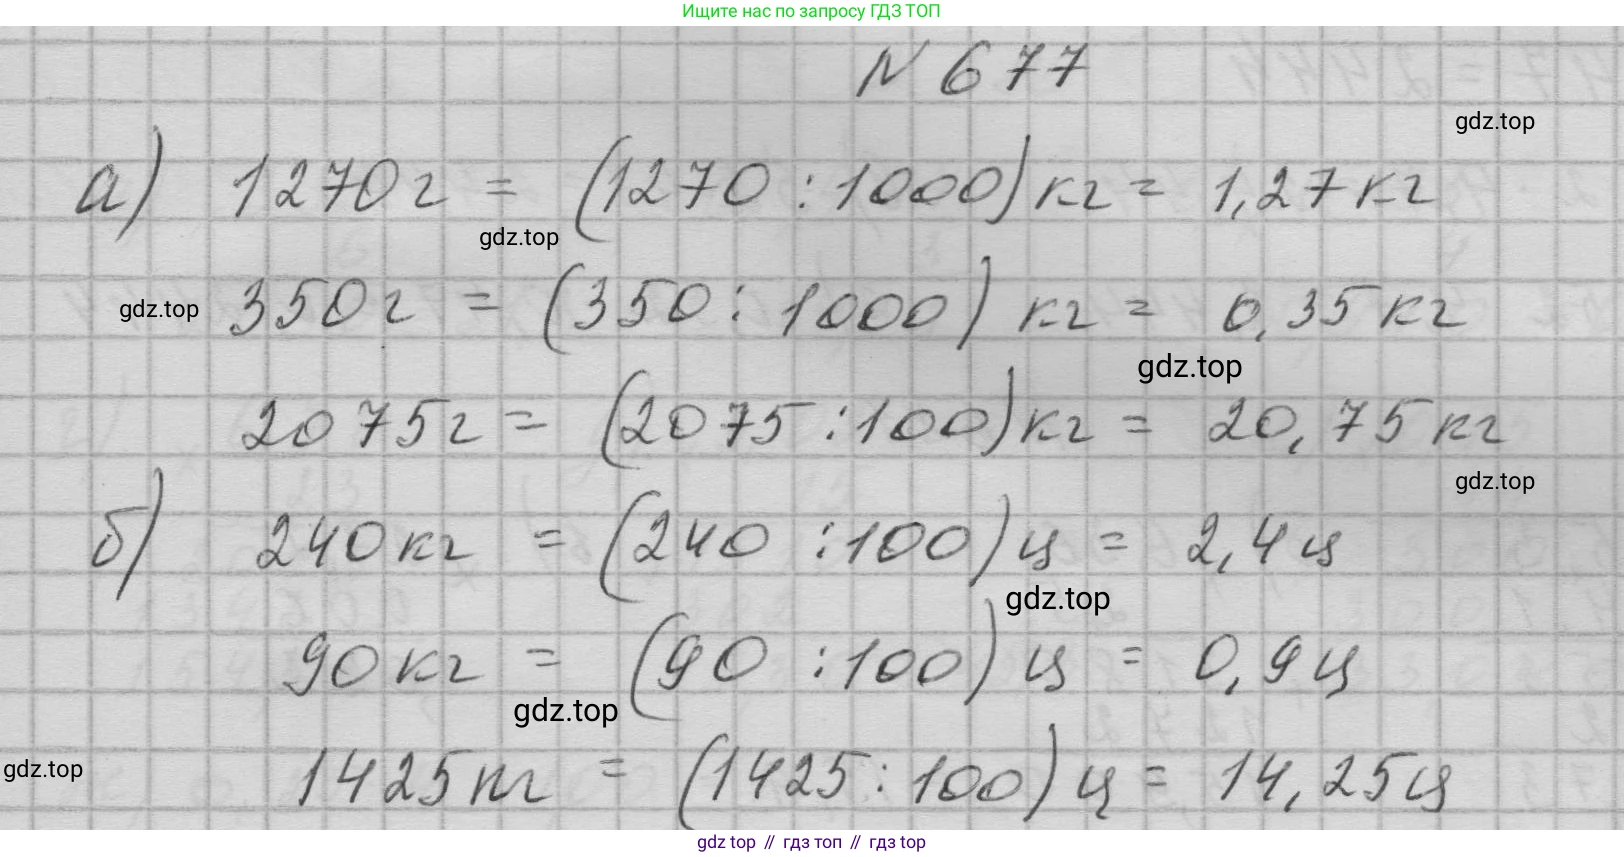 Ищите нас по запросу ГДЗ ТОП
N 677
gdz.top
а) 1270г = (1270 : 1000) кг = 1,27 кг
gdz.top
gdz.top 350г = (350 : 1000) кг = 0,35 кг
gdz.top
2075г = (2075 : 100) кг = 20,75 кг
gdz.top
б) 240 кг = (240 : 100) ц = 2,4 ц
gdz.top
90 кг = (90 : 100) ц = 0,9 ц
gdz.top
gdz.top 1425 кг = (1425 : 100) ц = 14,25 ц
gdz top // гдз топ // гдз top